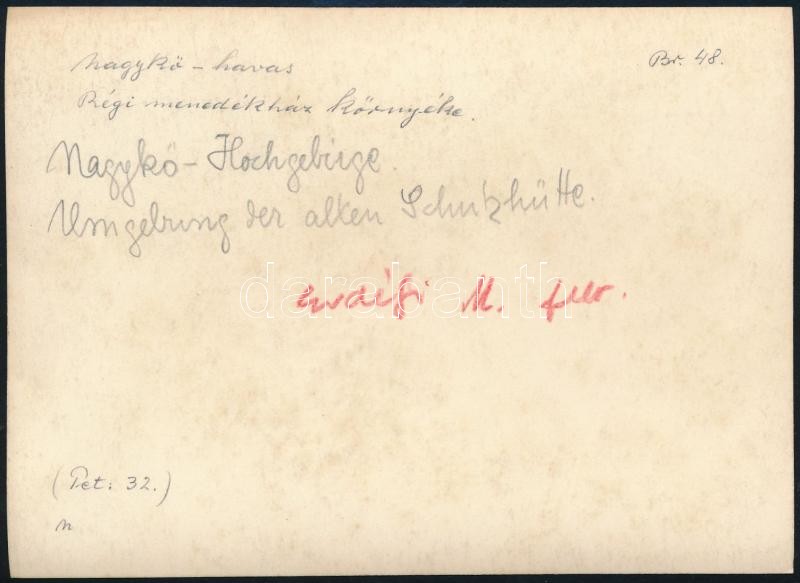 Nagykő – havas
Br. 48.
Régi menedékház környéke.
Nagykő – Hochgebirge.
Umgebung der alten Schutzhütte.
darabanth
Erdélyi M. felv.
(Pet: 32.)
n